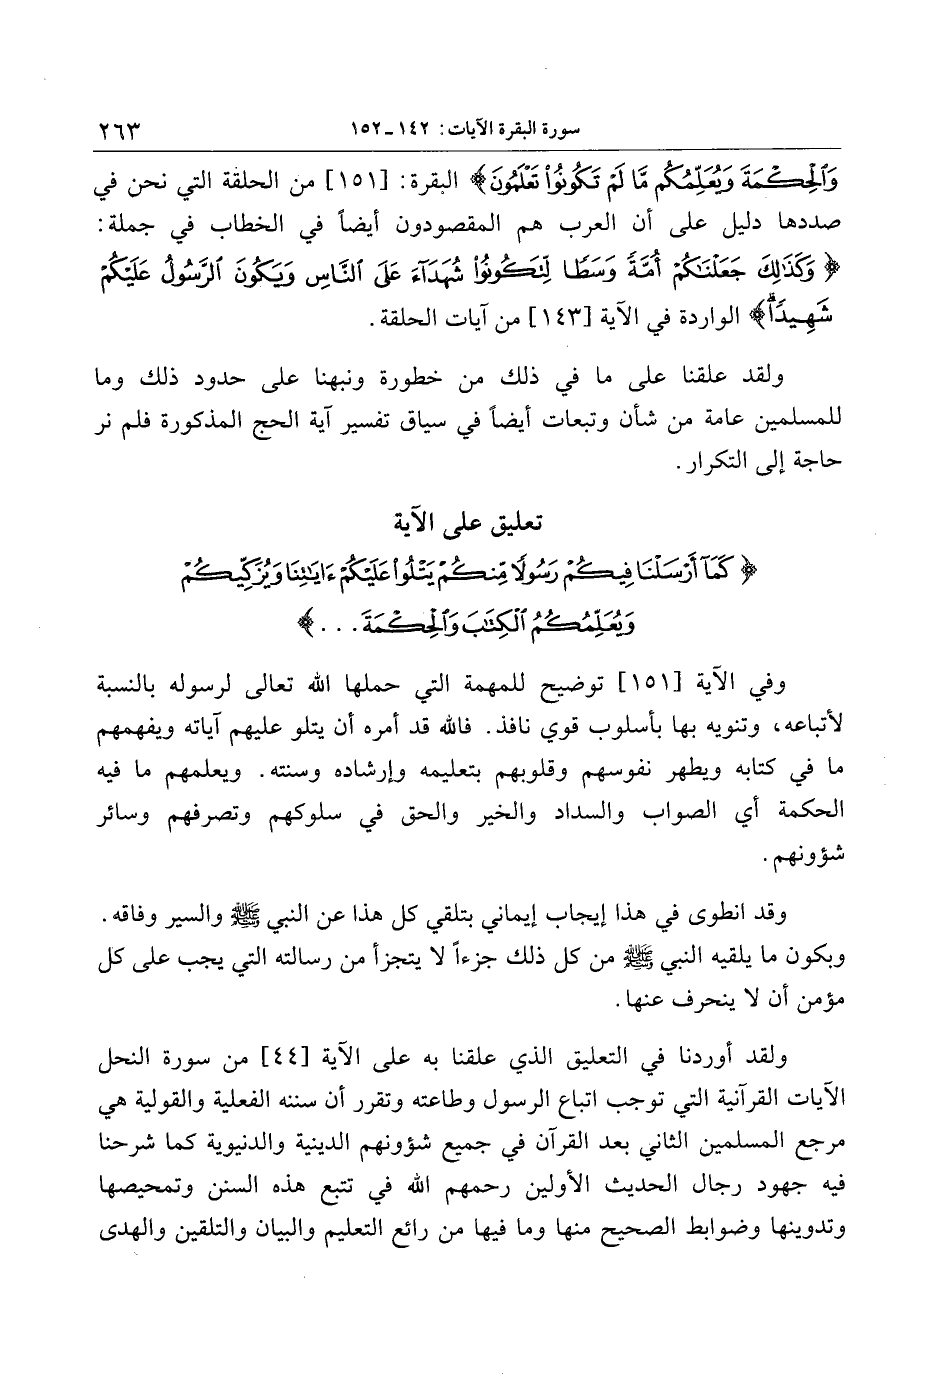 سورة البقرة الآيات: ١٤٢-١٥٢ ٢٦٣
وَٱلْحِكْمَةَ وَيُعَلِّمُكُم مَّا لَمْ تَكُونُوا۟ تَعْلَمُونَ﴾ البقرة: [١٥١] من الحلقة التي نحن في
صددها دليل على أن العرب هم المقصودون أيضاً في الخطاب في جملة:
﴿ وَكَذَٰلِكَ جَعَلْنَٰكُمْ أُمَّةً وَسَطًا لِّتَكُونُوا۟ شُهَدَآءَ عَلَى ٱلنَّاسِ وَيَكُونَ ٱلرَّسُولُ عَلَيْكُمْ
شَهِيدًاۗ﴾ الواردة في الآية [١٤٣] من آيات الحلقة.
ولقد علقنا على ما في ذلك من خطورة ونبهنا على حدود ذلك وما
للمسلمين عامة من شأن وتبعات أيضاً في سياق تفسير آية الحج المذكورة فلم نر
حاجة إلى التكرار.
تعليق على الآية
﴿ كَمَآ أَرْسَلْنَا فِيكُمْ رَسُولًا مِّنكُمْ يَتْلُوا۟ عَلَيْكُمْ ءَايَٰتِنَا وَيُزَكِّيكُمْ
وَيُعَلِّمُكُمُ ٱلْكِتَٰبَ وَٱلْحِكْمَةَ . . . ﴾
وفي الآية [١٥١] توضيح للمهمة التي حملها الله تعالى لرسوله بالنسبة
لأتباعه، وتنويه بها بأسلوب قوي نافذ. فالله قد أمره أن يتلو عليهم آياته ويفهمهم
ما في كتابه ويطهر نفوسهم وقلوبهم بتعليمه وإرشاده وسنته. ويعلمهم ما فيه
الحكمة أي الصواب والسداد والخير والحق في سلوكهم وتصرفهم وسائر
شؤونهم.
وقد انطوى في هذا إيجاب إيماني بتلقي كل هذا عن النبي ﷺ والسير وفاقه.
وبكون ما يلقيه النبي ﷺ من كل ذلك جزءاً لا يتجزأ من رسالته التي يجب على كل
مؤمن أن لا ينحرف عنها.
ولقد أوردنا في التعليق الذي علقنا به على الآية [٤٤] من سورة النحل
الآيات القرآنية التي توجب اتباع الرسول وطاعته وتقرر أن سننه الفعلية والقولية هي
مرجع المسلمين الثاني بعد القرآن في جميع شؤونهم الدينية والدنيوية كما شرحنا
فيه جهود رجال الحديث الأولين رحمهم الله في تتبع هذه السنن وتمحيصها
وتدوينها وضوابط الصحيح منها وما فيها من رائع التعليم والبيان والتلقين والهدى